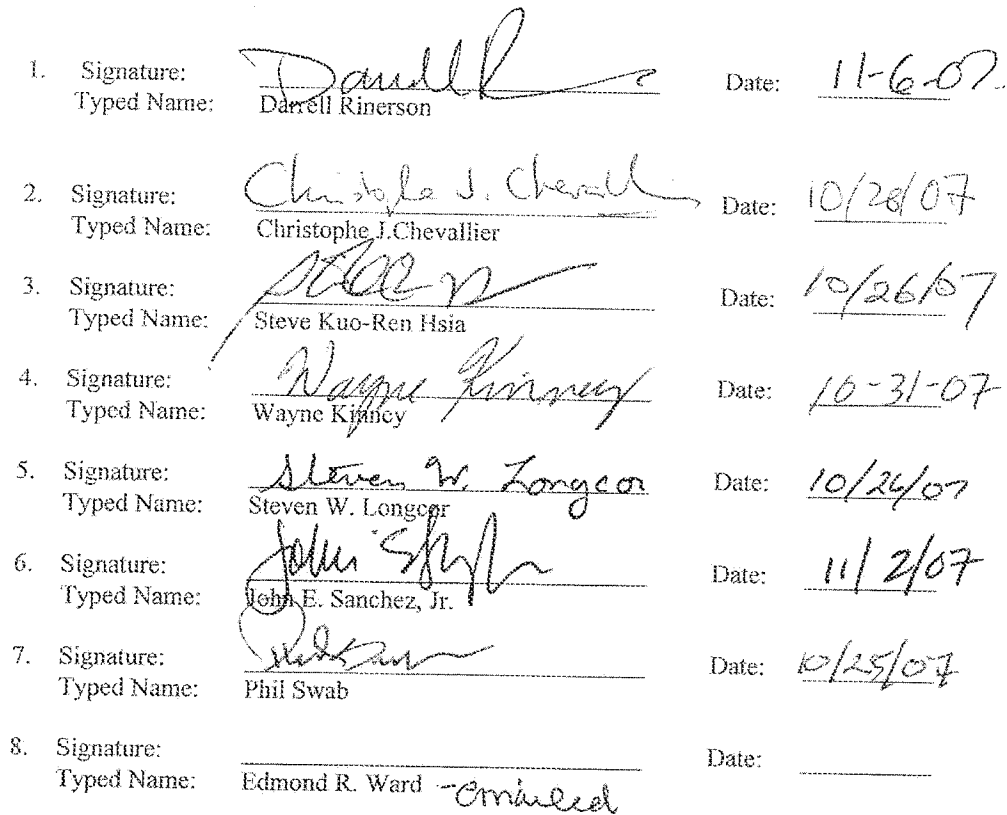 1. Signature: Darrell R Date: 11-6-07
Typed Name: Darrell Rinerson
2. Signature: Christophe J. Chevalli Date: 10/28/07
Typed Name: Christophe J.Chevallier
3. Signature: Date: 10/26/07
Typed Name: Steve Kuo-Ren Hsia
4. Signature: Wayne Kinney Date: 10-31-07
Typed Name: Wayne Kinney
5. Signature: Steven W. Longcor Date: 10/26/07
Typed Name: Steven W. Longcor
6. Signature: John Date: 11/2/07
Typed Name: John E. Sanchez, Jr.
7. Signature: Date: 10/25/07
Typed Name: Phil Swab
8. Signature: Date:
Typed Name: Edmond R. Ward -